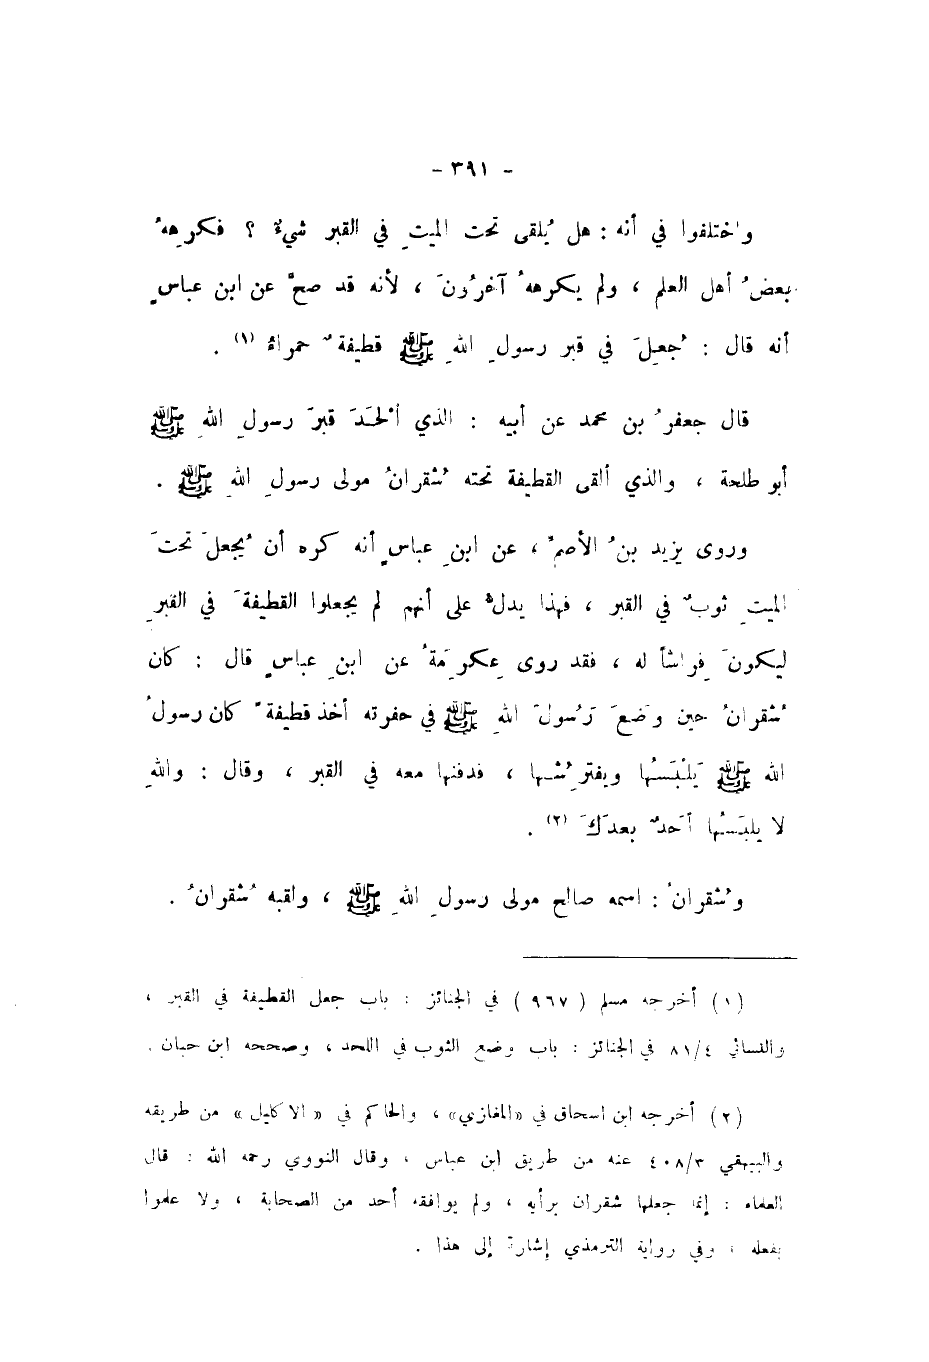 - ٣٩١ -
واختلفوا في أنه : هل يُلقى تحت الميتِ في القبر شيءٌ ؟ فكرِهَهُ
بعضُ أهل العلم ، ولم يكرههُ آخرُونَ ، لأنه قد صحَّ عن ابن عباسٍ
أنه قال : جُعِلَ في قبر رسولِ اللهِ ﷺ قطيفةٌ حمراءُ (١) .
قال جعفرُ بن محمد عن أبيه : الذي أَلْحَدَ قبرَ رسولِ اللهِ ﷺ
أبو طلحة ، والذي ألقى القطيفة تحته شُقرانُ مولى رسولِ اللهِ ﷺ .
وروى يزيد بنُ الأصمِّ ، عن ابنِ عباسٍ أنه كره أن يُجعلَ تحتَ
الميتِ ثوبٌ في القبر ، فهذا يدلُّ على أنهم لم يجعلوا القطيفةَ في القبرِ
ليكونَ فِراشاً له ، فقد روى عِكرِمَةُ عن ابنِ عباسٍ قال : كان
شُقرانُ حين وَضَعَ رَسُولَ اللهِ ﷺ في حفرته أخذ قطيفةً كان رسولُ
الله ﷺ يَلْبَسُها ويفترِشُها ، فدفنها معه في القبر ، وقال : واللهِ
لا يلبَسُها أَحَدٌ بعدَكَ (٢) .
وشُقرانُ : اسمه صالح مولى رسولِ اللهِ ﷺ ، ولقبه شُقرانُ .
(١) أخرجه مسلم ( ٩٦٧ ) في الجنائز : باب جعل القطيفة في القبر ،
والنسائي ٨١/٤ في الجنائز : باب وضع الثوب في اللحد ، وصححه ابن حبان .
(٢) أخرجه ابن اسحاق في «المغازي» ، والحاكم في « الاكليل » من طريقه
والبيهقي ٤٠٨/٣ عنه من طريق ابن عباس ، وقال النووي رحمه الله : قال
العلماء : إنما جعلها شقران برأيه ، ولم يوافقه أحد من الصحابة ، ولا علموا
بفعله ، وفي رواية الترمذي إشارة إلى هذا .